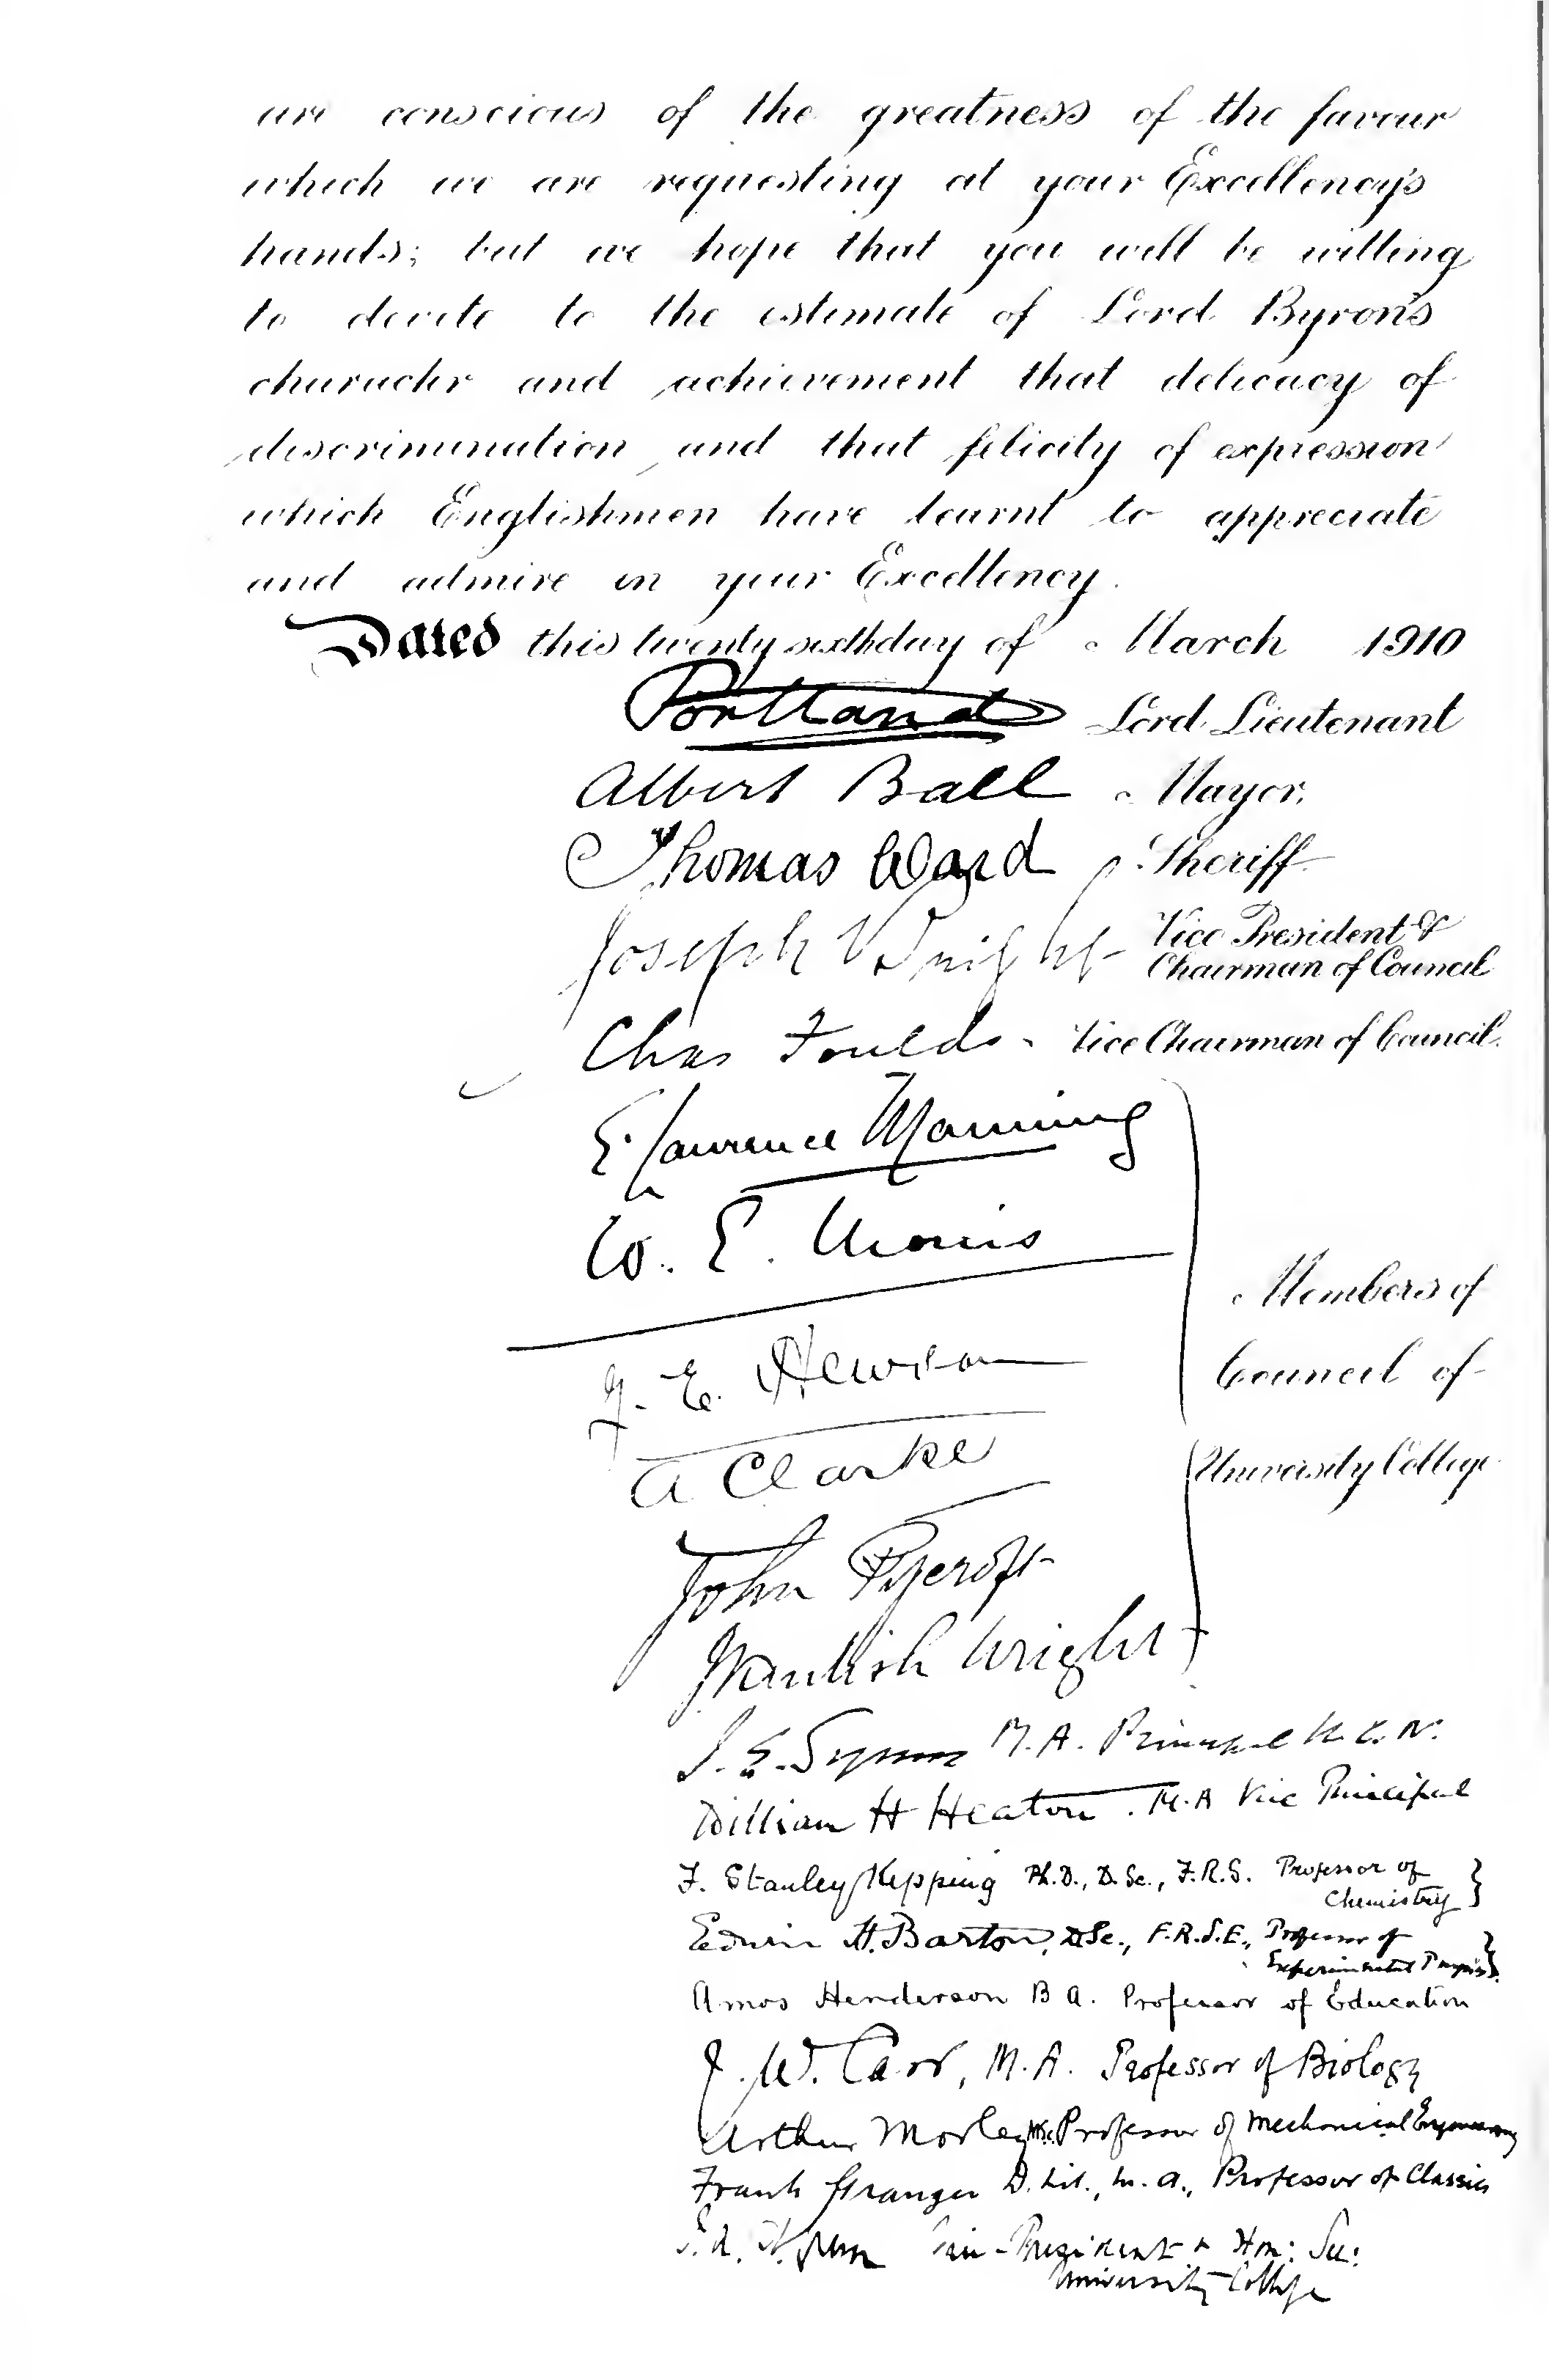 are conscious of the greatness of the favour
which we are requesting at your Excellency's
hands; but we hope that you will be willing
to devote to the estimate of Lord Byron's
character and achievement that delicacy of
discrimination and that felicity of expression
which Englishmen have learnt to appreciate
and admire in your Excellency.
Dated this twenty sixth day of March 1910
Portland Lord Lieutenant
Albert Ball Mayor.
Thomas Ward Sheriff
Joseph Wright Vice President &
Chairman of Council
Chas Foulds. Vice Chairman of Council.
E. Lawrence Manning
W. E. Morris
Members of
J. E. Newson
Council of
A Clarke
University College
John Pycroft
Wright
J. E. Symes M.A. Principal U.C.N.
William H Heaton. M.A Vice Principal
F. Stanley Kipping Ph.D., D.Sc., F.R.S. Professor of
Chemistry
Edwin H. Barton, DSc., F.R.S.E., Professor of
Experimental Physics.
Amos Henderson B A. Professor of Education
J. W. Carr, M.A. Professor of Biology
Arthur Morley M.Sc. Professor of Mechanical Engineering
Frank Granger D. Lit., M.A., Professor of Classics
Vice-President & Hon: Sec:
University College